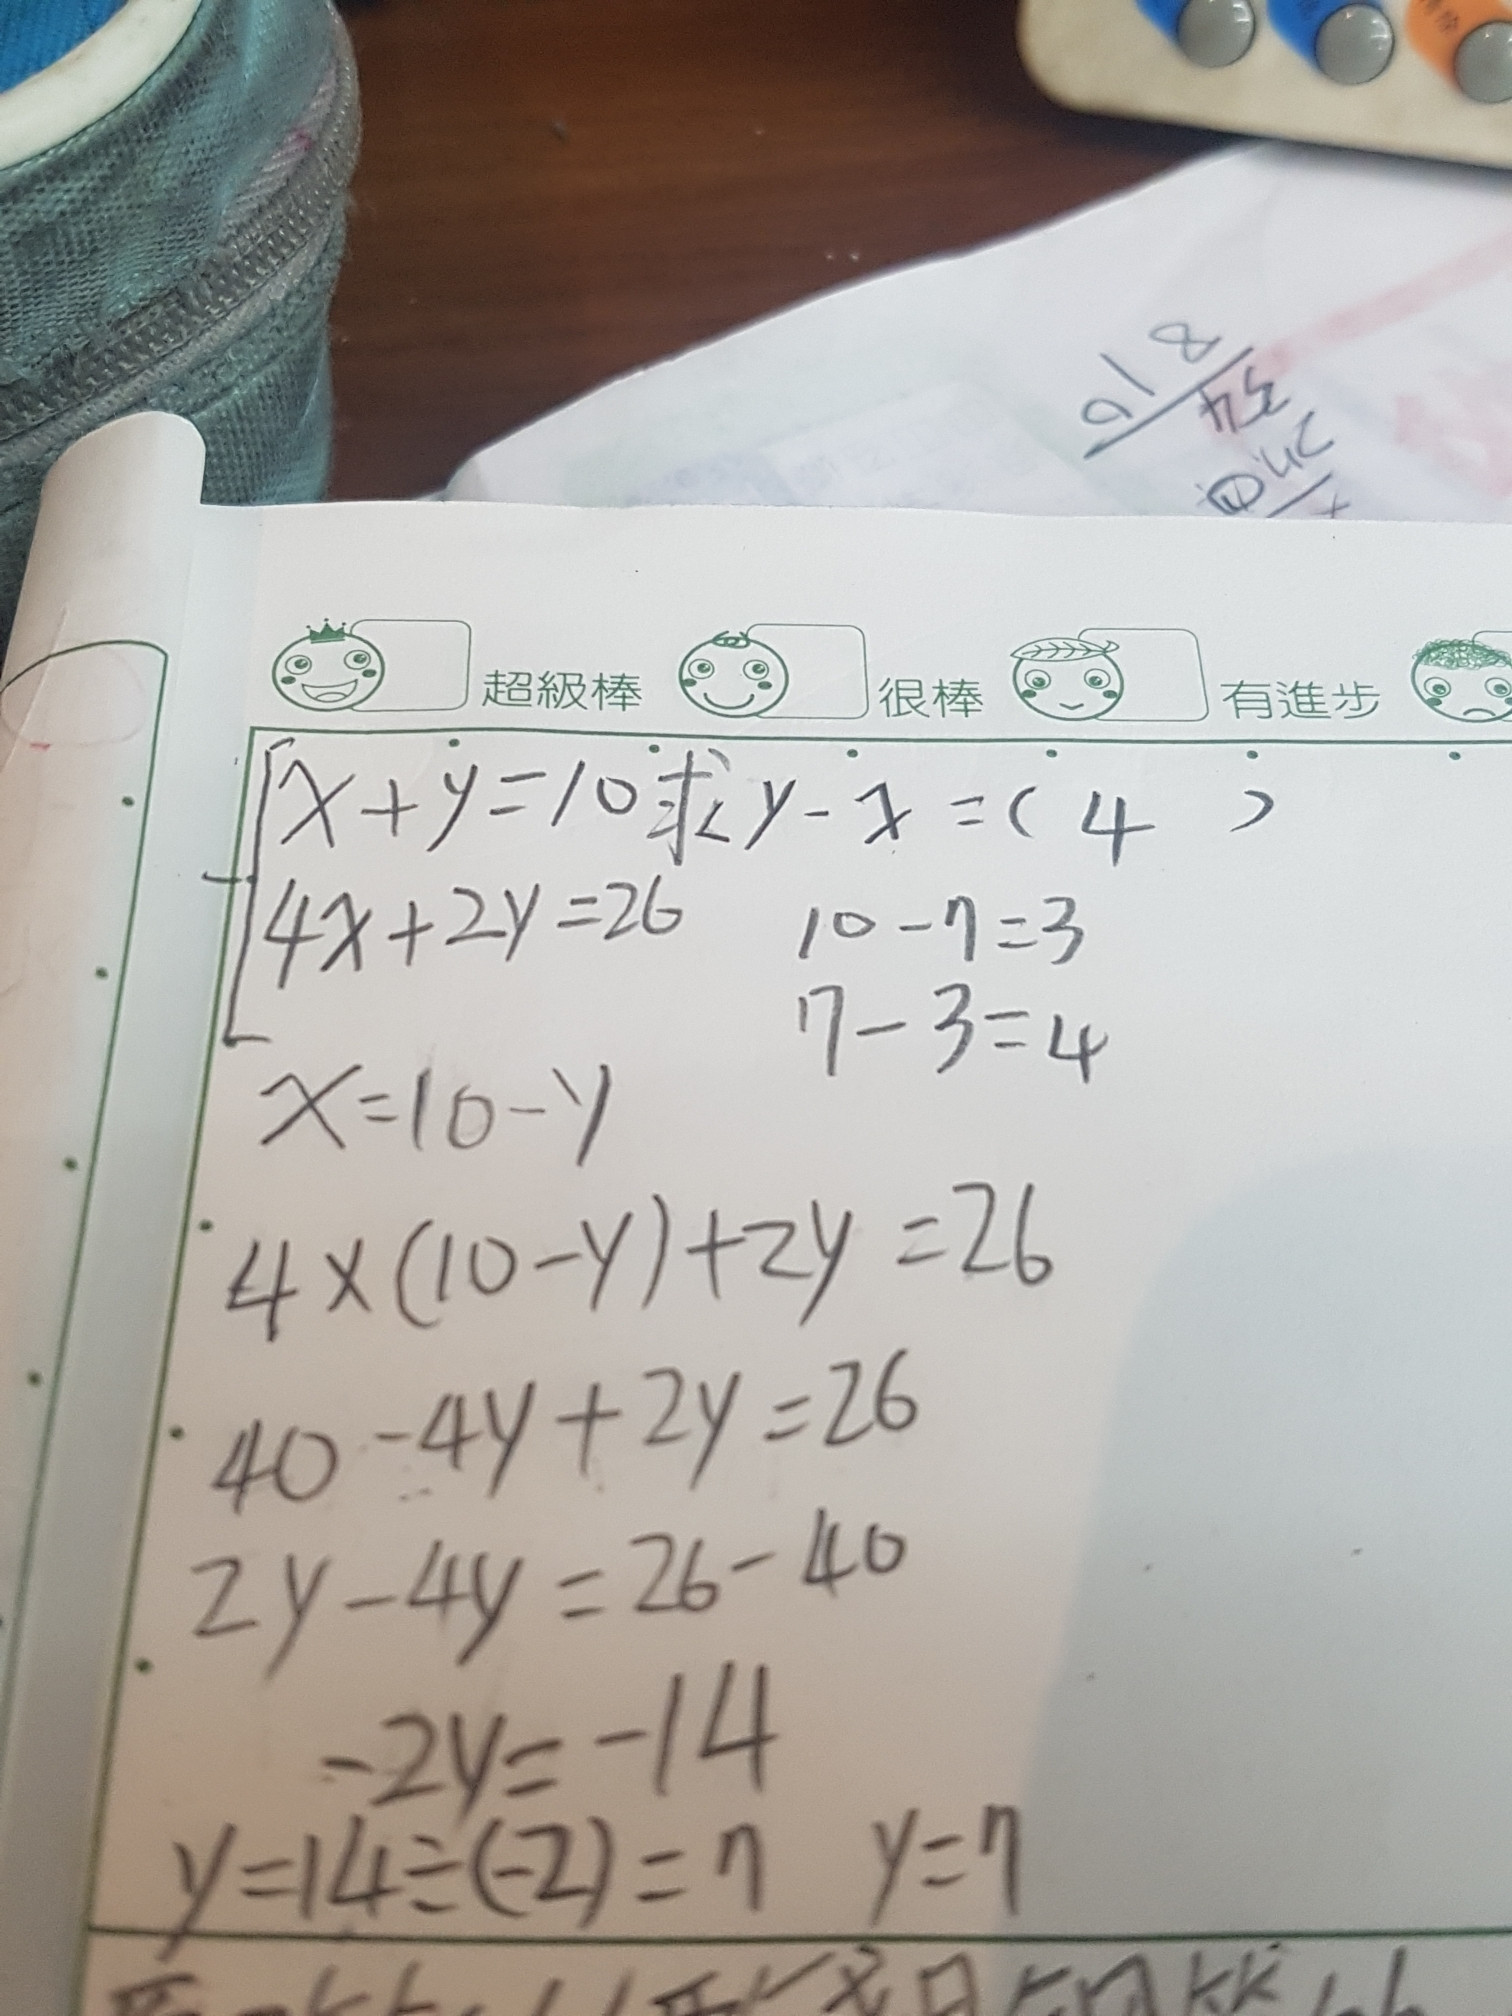 超級棒 很棒 有進步
x+y=10求y-x=(4)
4x+2y=26
10-7=3
7-3=4
x=10-y
4×(10-y)+2y=26
40-4y+2y=26
2y-4y=26-40
-2y=-14
y=14÷(-2)=7 y=7